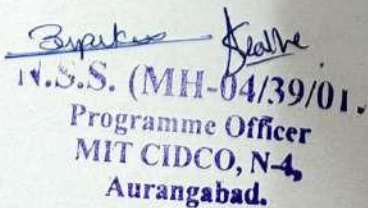 N.S.S. (MH-04/39/01.
Programme Officer
MIT CIDCO, N-4,
Aurangabad.